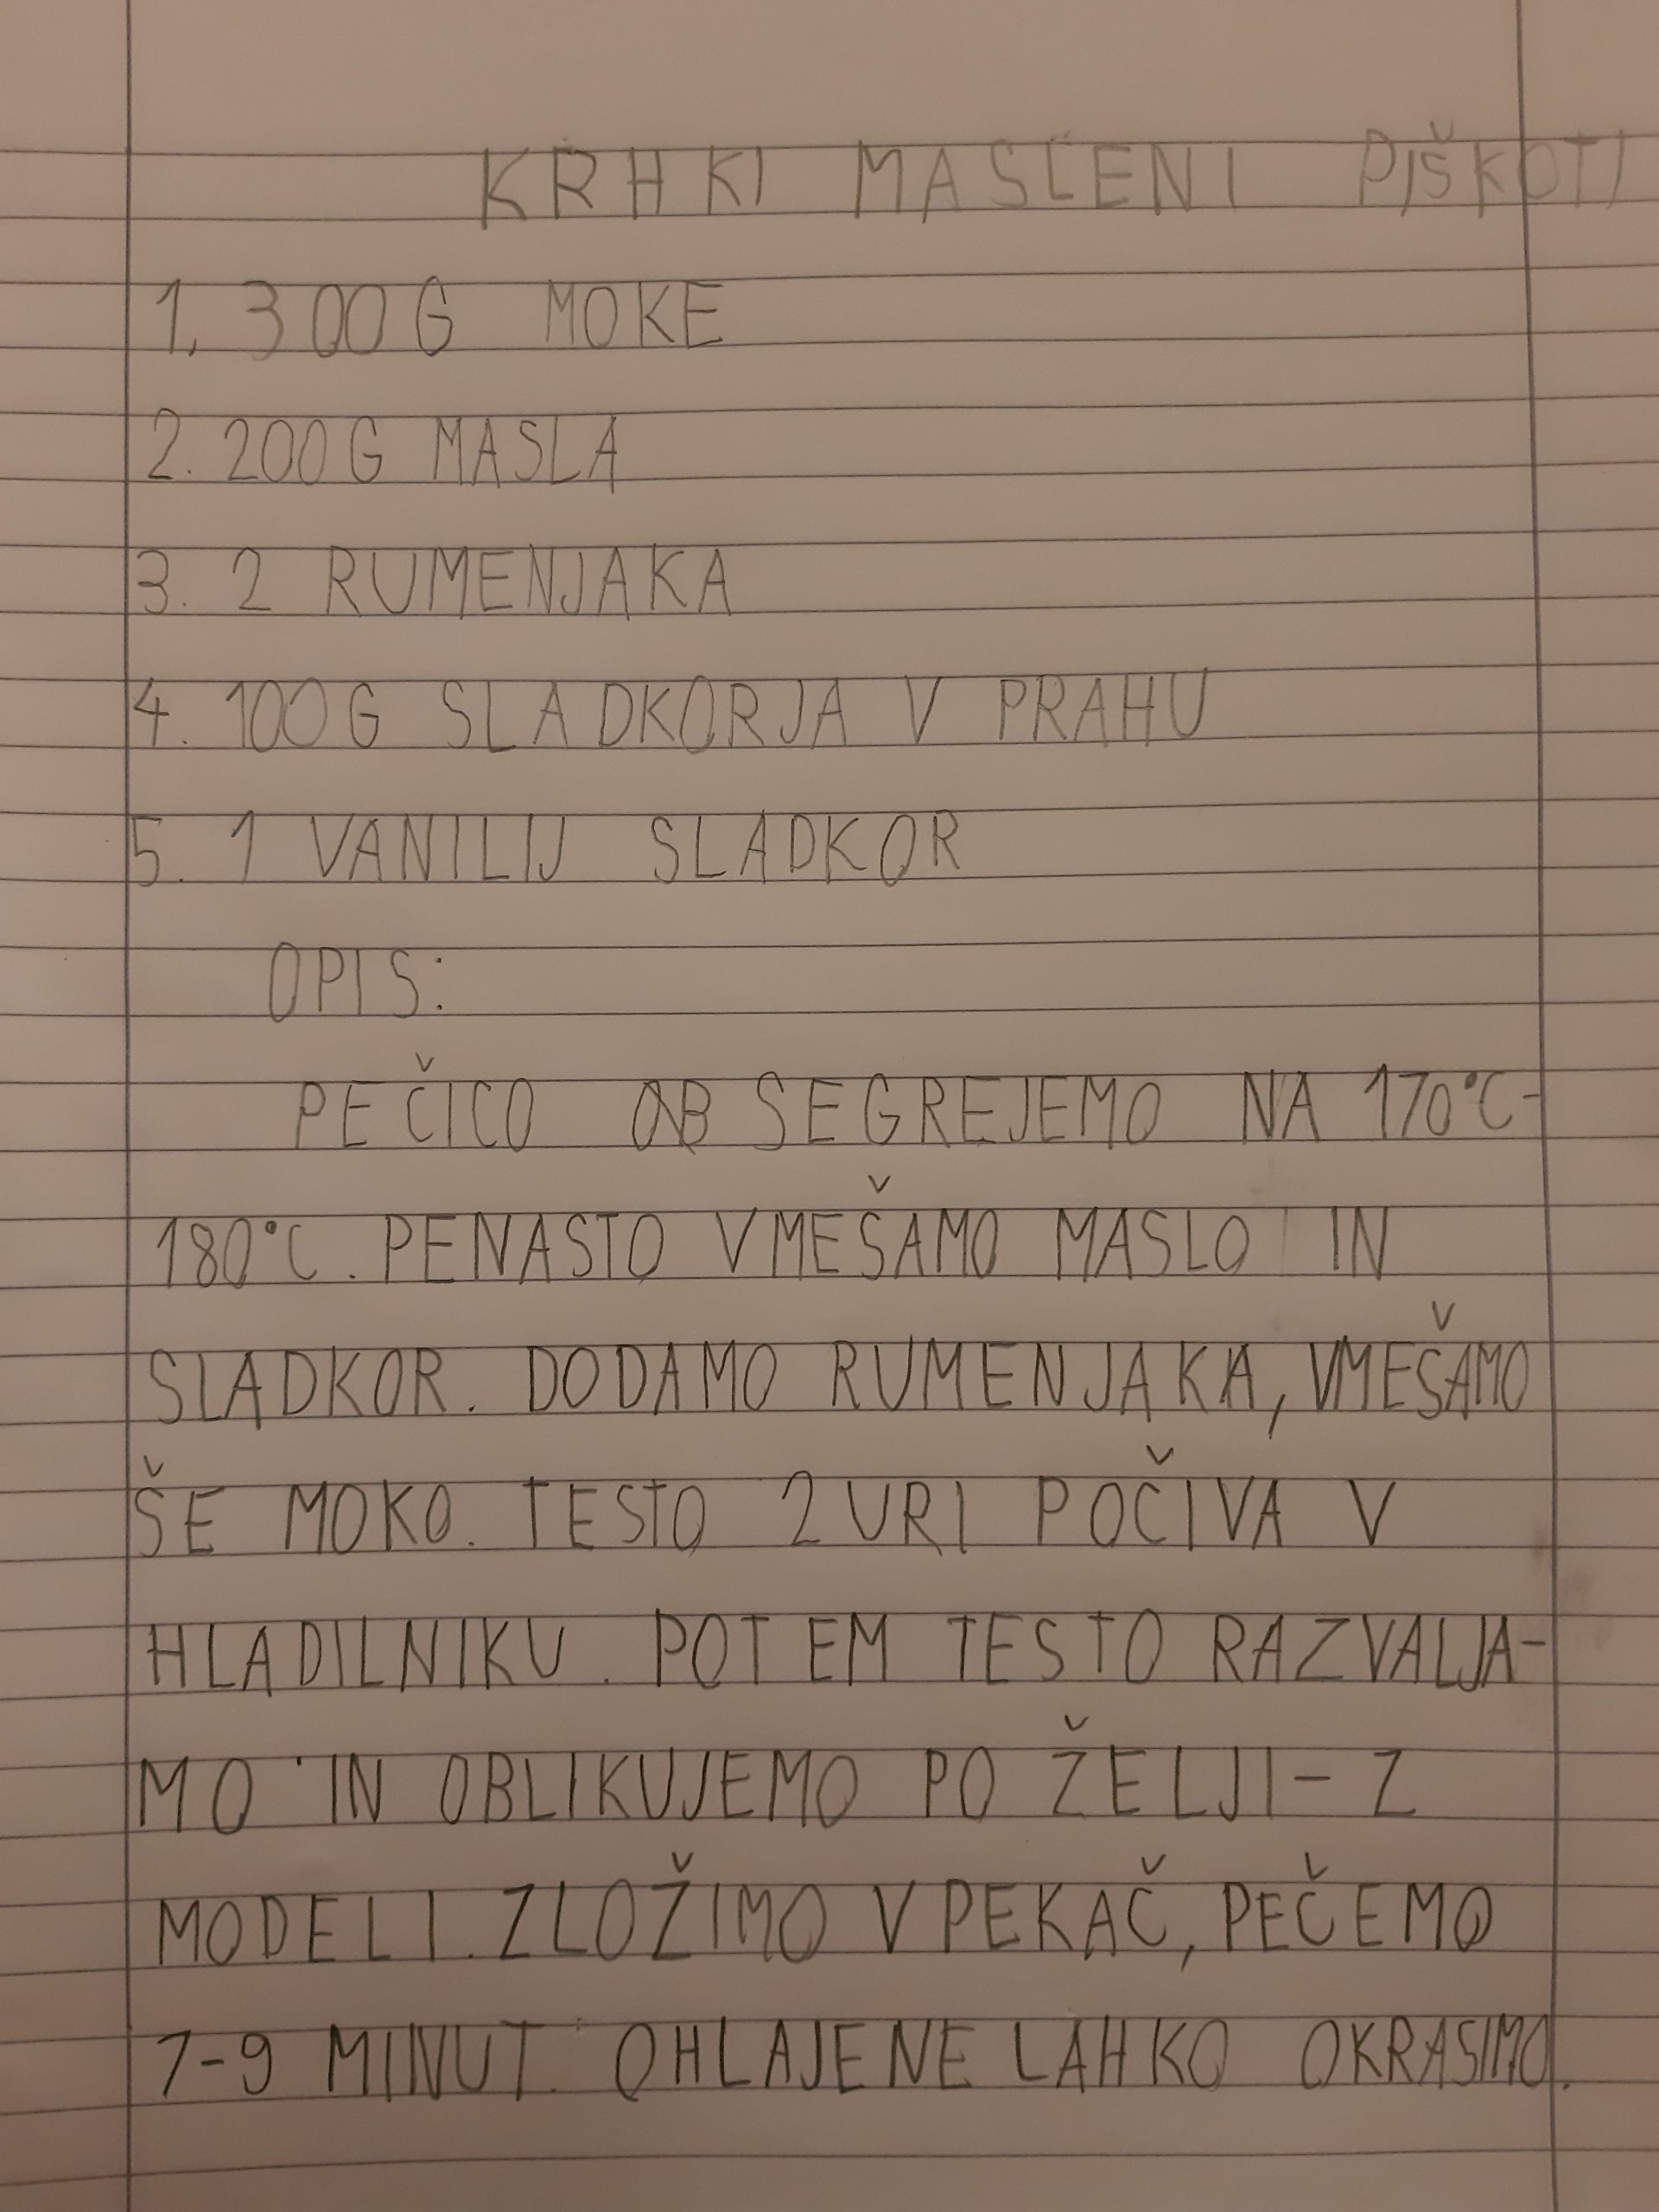 KRHKI MASLENI PIŠKOTI
1. 300 G MOKE
2. 200 G MASLA
3. 2 RUMENJAKA
4. 100 G SLADKORJA V PRAHU
5. 1 VANILIJ SLADKOR
OPIS:
PEČICO OB SEGREJEMO NA 170°C-
180°C. PENASTO VMEŠAMO MASLO IN
SLADKOR. DODAMO RUMENJAKA, VMEŠAMO
ŠE MOKO. TESTO 2 URI POČIVA V
HLADILNIKU. POTEM TESTO RAZVALJA-
MO IN OBLIKUJEMO PO ŽELJI - Z
MODELI. ZLOŽIMO V PEKAČ, PEČEMO
7-9 MINUT. OHLAJENE LAHKO OKRASIMO.